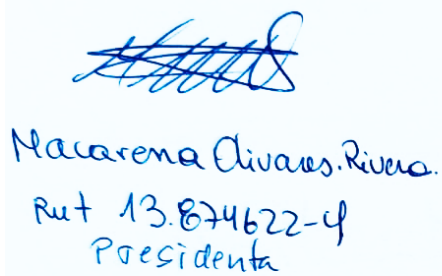 Macarena Olivares. Rivera.
Rut 13.874622-4
Presidenta